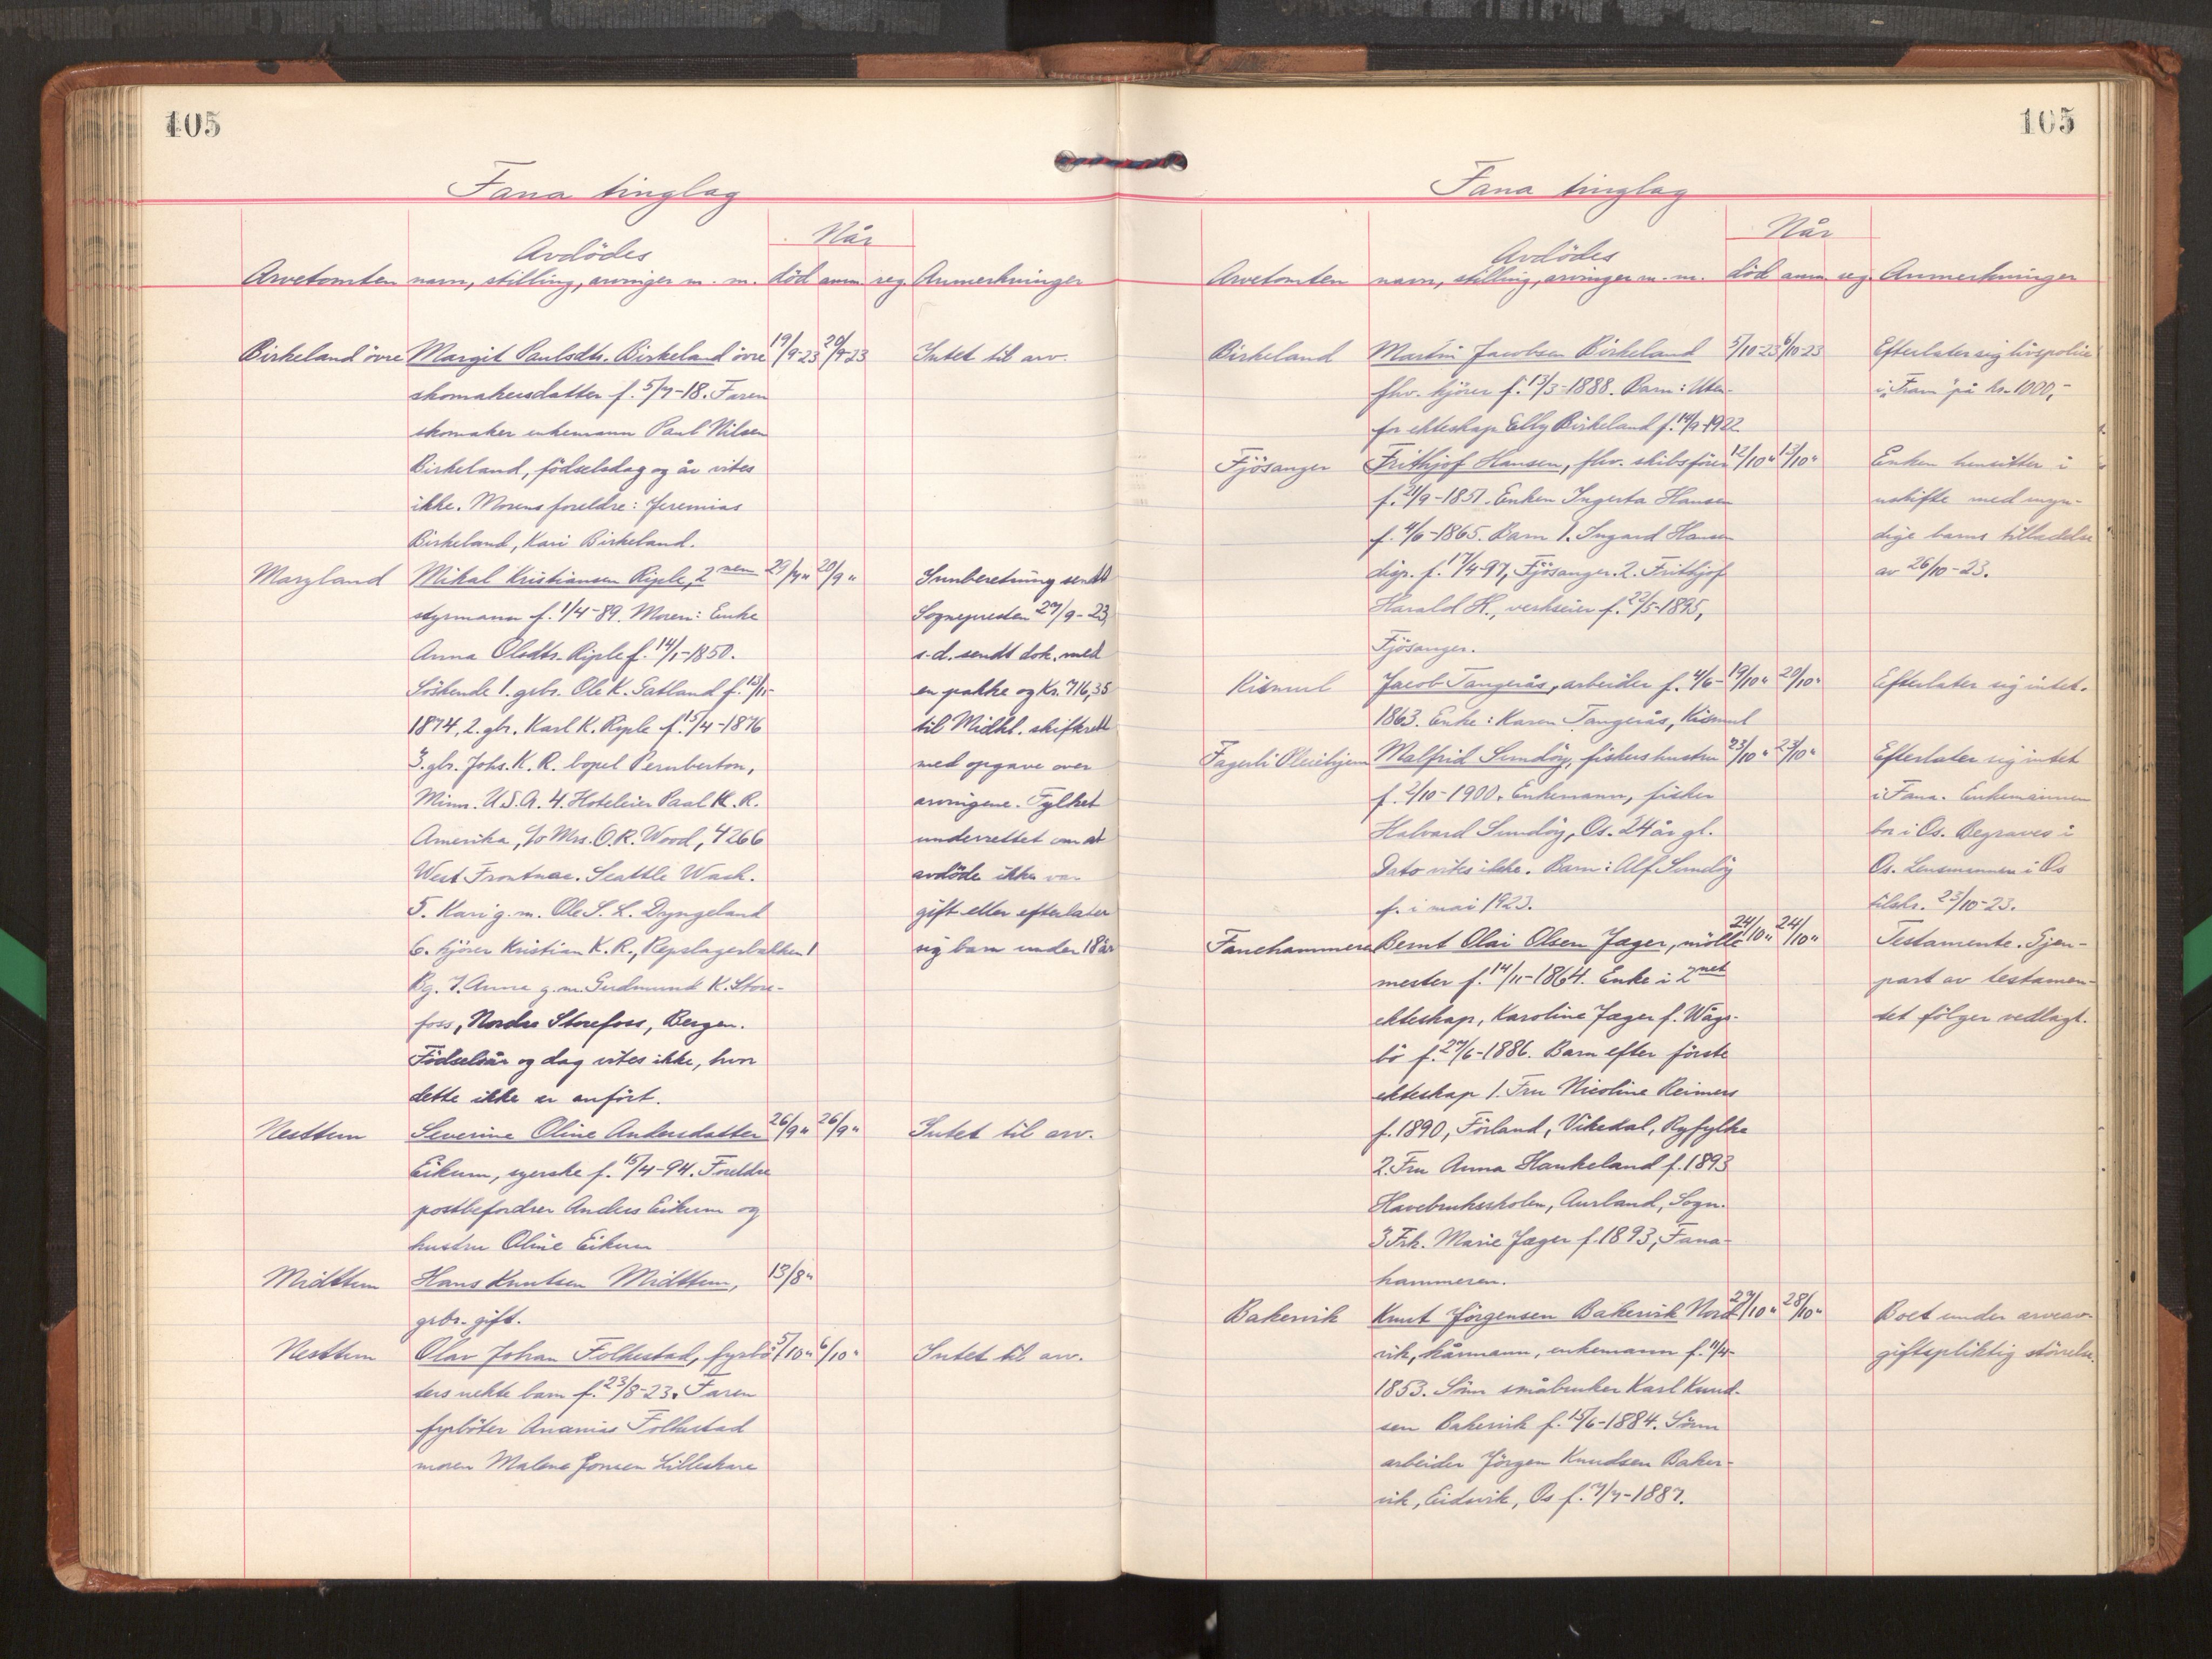 105
Fana tinglag
Når
Avdödes
Arvetomten navn, stilling, arvinger m. m. död anm. reg. Anmerkninger
Birkeland övre Margit Paulsdtr. Birkeland övre 19/9-23 20/9-23 Intet til arv.
skomakersdatter f. 5/7-18. Faren
skomaker enkemann Paul Nilsen
Birkeland, födselsdag og år vites
ikke. Morens foreldre: Jeremias
Birkeland, Kari Birkeland.
Maryland Mikal Kristiansen Riple, 2nen 29/7" 20/9" Innberetning sendt
styrmann f. 1/4-89. Moren: Enke Sognepresten 27/9-23,
Anna Olsdtr. Riple f. 14/1-1850. s.d. sendt dok. med
Söskende 1. grbr. Ole K. Satland f. 13/11- en pakke og Kr. 716,35
1874, 2. gbr. Karl K. Riple f. 15/4-1876 til Midhl. skifterett
3. gbr. Johs. K. R. bopel Pemberton, med opgave over
Minn. U.S.A. 4. Hoteleier Paal K. R. arvingene. Fylket
Amerika, c/o Mrs. O.R. Wood, 4266 underrettet om at
West Frontnac. Seattle Wash. avdöde ikke var
5. Kari g. m. Ole S. L. Dyngeland gift eller efterlater
6. kjörer Kristian K. R., Repslagerbakken 1 sig barn under 18 år
Bg. 7. Anna g. m. Gudmund K. Store-
foss, Nordre Storefoss, Bergen.
Födselsår og dag vites ikke, hvor
dette ikke er anfört.
Nesttun Severine Oline Andersdatter 26/9" 26/9" Intet til arv.
Eikum, syerske f. 15/4-94. Foreldre
postbefordrer Anders Eikum og
hustru Oline Eikum
Midttun Hans Knutsen Midttun, 13/8"
grbr. gift.
Nesttun Olav Johan Folkestad, fyrbö- 5/10" 6/10" Intet til arv.
ters uekte barn f. 23/8-23. Faren
fyrböter Ananias Folkestad
moren Malene Jonsen Lilleskare
105
Fana tinglag
Når
Avdödes
Arvetomten navn, stilling, arvinger m. m. död anm. reg. Anmerkninger
Birkeland Martin Jacobsen Birkeland 5/10-23 6/10-23 Efterlater sig livspolice
fhv. kjörer f. 13/3-1888. Barn: Uten- i "Fram" på kr. 1000,-
for ekteskap Elly Birkeland f. 14/9-1922
Fjösanger Frithjof Hansen, fhv. skibsförer 12/10" 13/10" Enken hensitter i
f. 21/9-1851. Enken Ingerta Hansen uskifte med myn-
f. 4/6-1865. Barn 1. Ingard Hansen dige barns tilladelse
disp. f. 17/4-97, Fjösanger. 2. Frithjof av 26/10-23.
Harald H., verkseier f. 22/5-1895,
Fjösanger.
Kismul Jacob Tangerås, arbeider f. 4/6- 19/10" 20/10" Efterlater sig intet.
1863. Enke: Karen Tangerås, Kismul
Fagerli Pleiehjem Malfrid Sundöy, fiskers hustru 23/10" 23/10" Efterlater sig intet
f. 2/10-1900. Enkemann, fisker i Fana. Enkemannen
Halvard Sundöy, Os. 24 år gl. bor i Os. Begraves i
Dato vites ikke. Barn: Alf Sundöy Os. Lensmannen i Os
f. i mai 1923. tilskr. 23/10-23.
Fanehammeren Bernt Olai Olsen Jæger, mölle- 24/10" 24/10" Testamente. Gjen-
mester f. 14/11-1864. Enke i 2net part av testamen-
ekteskap, Karoline Jæger f. Wågs- tet fölger vedlagt.
bö f. 27/6-1886. Barn efter förste
ekteskap 1. Fru Nicoline Reimers
f. 1890, Förland, Vikedal, Ryfylke
2. Fru Anna Haukeland f. 1893
Havebruksskolen, Aurland, Sogn.
3 Frk. Marie Jæger f. 1893, Fana-
hammeren.
Bakervik Knut Jörgensen Bakervik Nord- 27/10" 28/10" Boet under arveav-
vik, kårmann, enkemann f. 11/4- giftspliktig störrelse.
1853. Sönn småbruker Karl Knud-
sen Bakervik f. 15/6-1884. Sönn
arbeider Jörgen Knudsen Baker-
vik, Eidsvik, Os f. 7/7-1887.